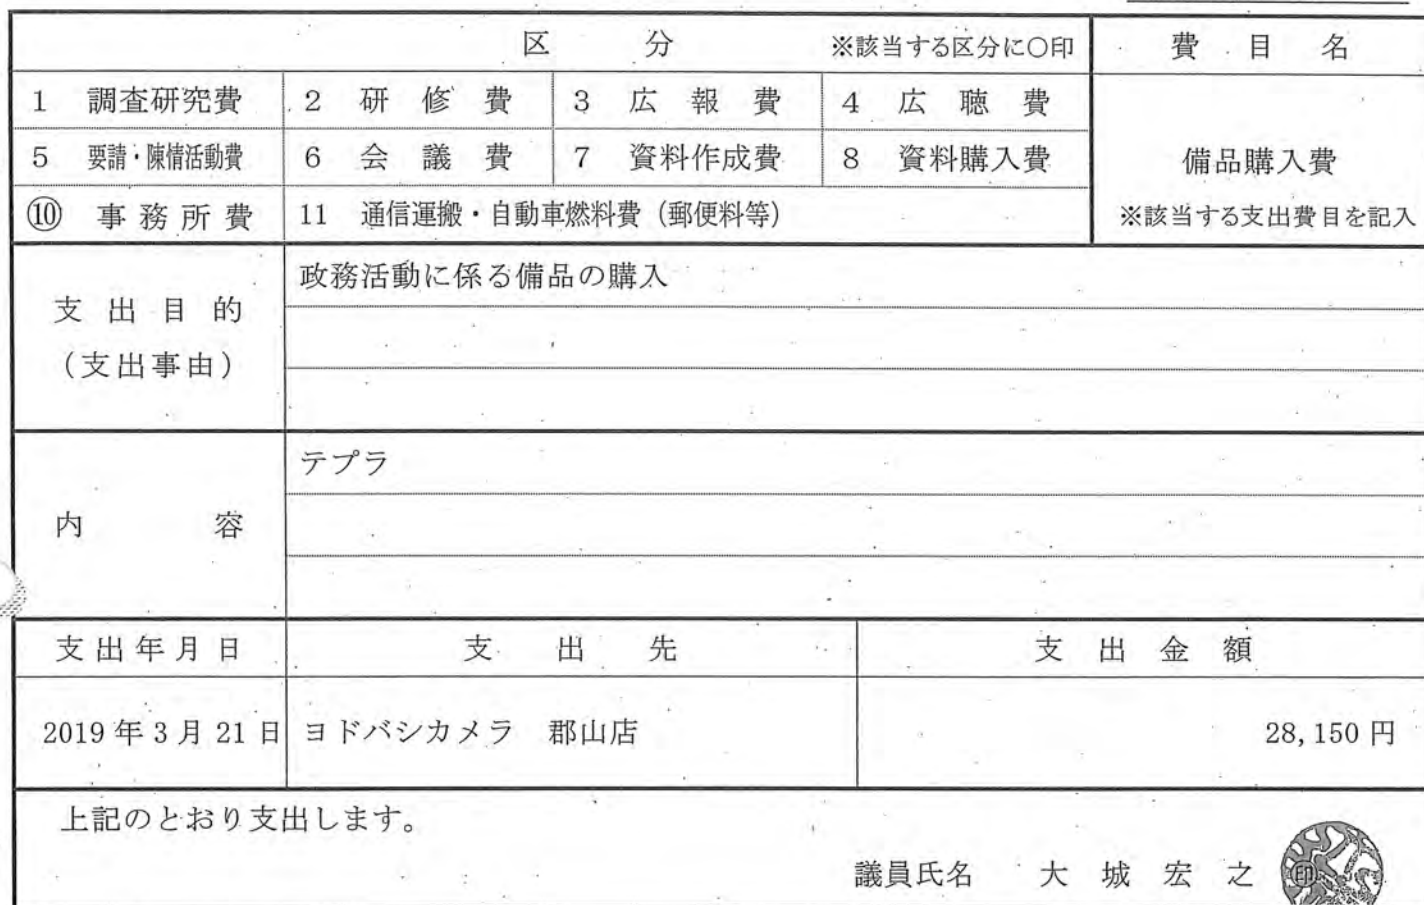 区 分 ※該当する区分に○印 費目名
1 調査研究費 2 研修費 3 広報費 4 広聴費
5 要請・陳情活動費 6 会議費 7 資料作成費 8 資料購入費 備品購入費
⑩ 事務所費 11 通信運搬・自動車燃料費（郵便料等） ※該当する支出費目を記入
支出目的
（支出事由）
政務活動に係る備品の購入
内容
テプラ
支出年月日 支出先 支出金額
2019年3月21日 ヨドバシカメラ 郡山店 28,150円
上記のとおり支出します。
議員氏名 大城宏之 印